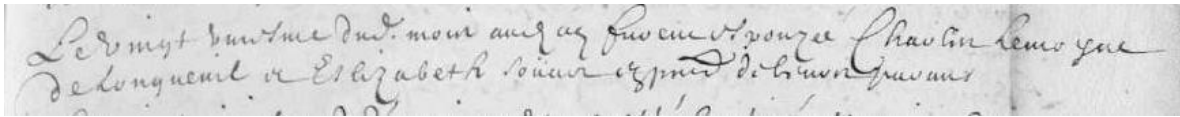 Le vingt uniesme dud. mois aud. an furent espouzée Charlin Lemoyne
de Longueuil et Eslizabeth Soüart es p̃nce de